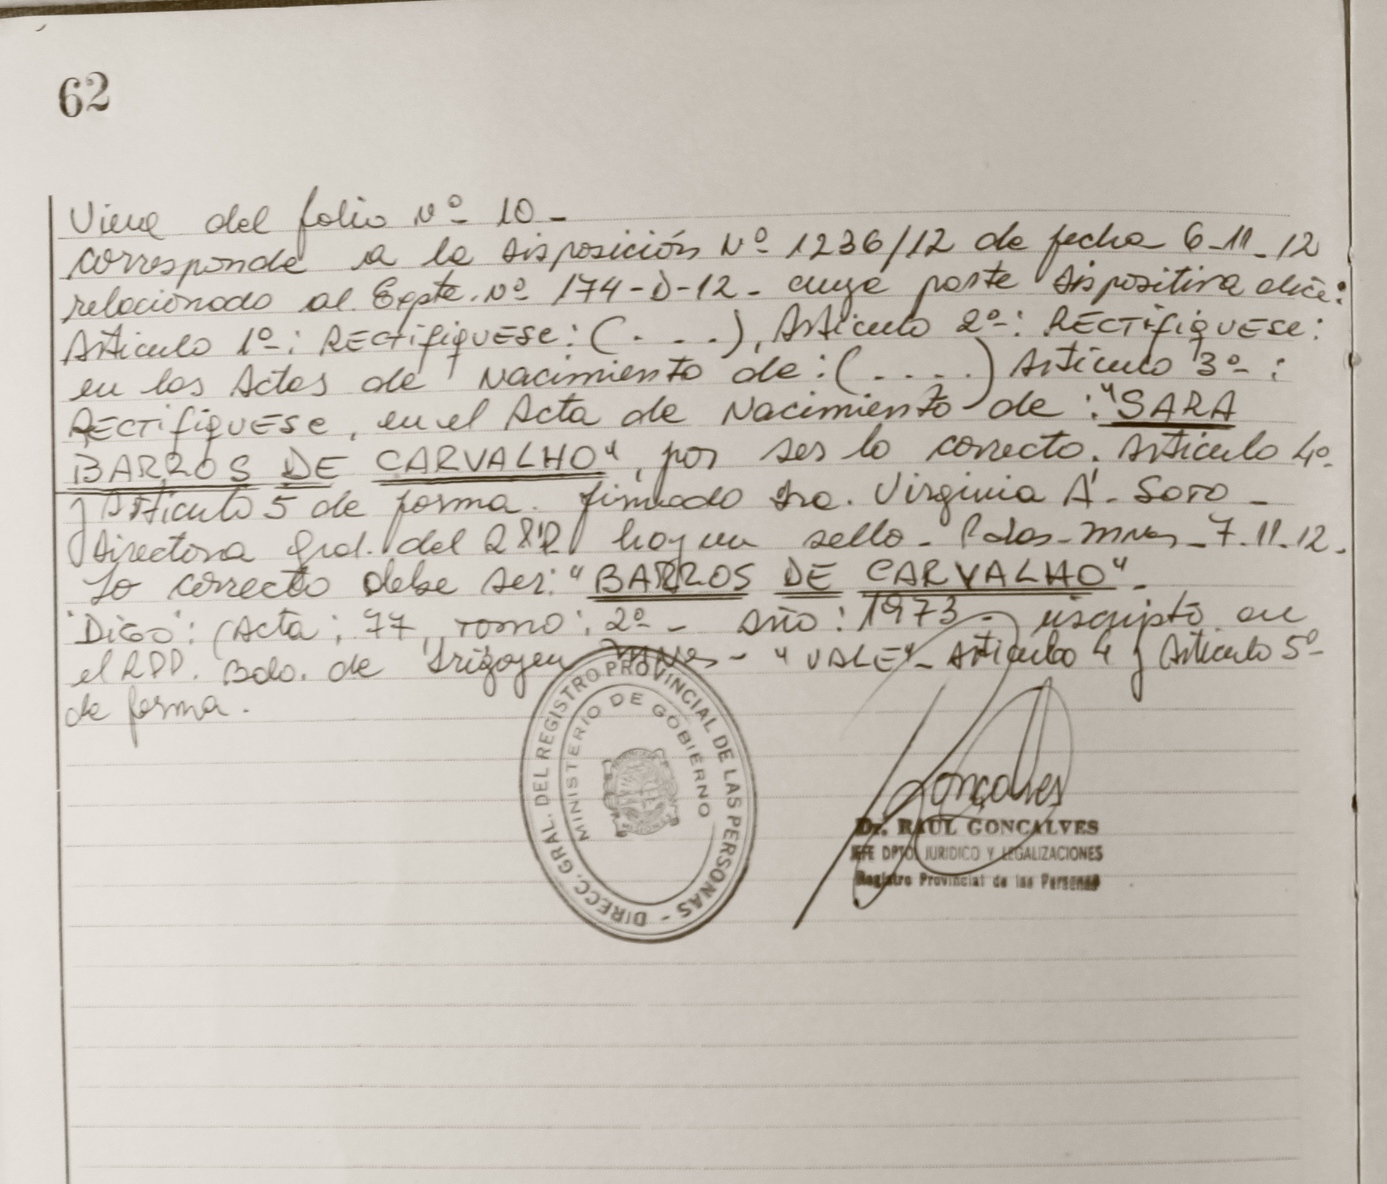 62
Viene del folio Nº 10 -
corresponde a la disposición Nº 1236/12 de fecha 6-11-12
relacionado al Expte. Nº 174-D-12 - cuya parte dispositiva dice:
Artículo 1º: RECTifiQUESE: (. . .), Artículo 2º: RECTifiQUESE:
en las Actas de Nacimiento de: (. . . .) Artículo 3º:
RECTifiQUESE, en el Acta de Nacimiento de: "SARA
BARROS DE CARVALHO", por ser lo correcto. Artículo 4º
y Artículo 5 de forma. firmado Dra. Virginia A. Soto -
Directora Gral. del RPP hay un sello - Pdas - Mnes - 7.11.12.
Lo correcto debe ser: "BARROS DE CARVALHO".
"Digo": (Acta: 77, Tomo: 2º - Año: 1973 - inscripto en
el RPP. Bdo. de Irigoyen Mnes - "VALE" - Artículo 4 y Artículo 5º
de forma.
DIRECC. GRAL. DEL REGISTRO PROVINCIAL DE LAS PERSONAS -
MINISTERIO DE GOBIERNO
Gonçalves
Dr. RAUL GONCALVES
JEFE DPTO. JURIDICO Y LEGALIZACIONES
Registro Provincial de las Personas